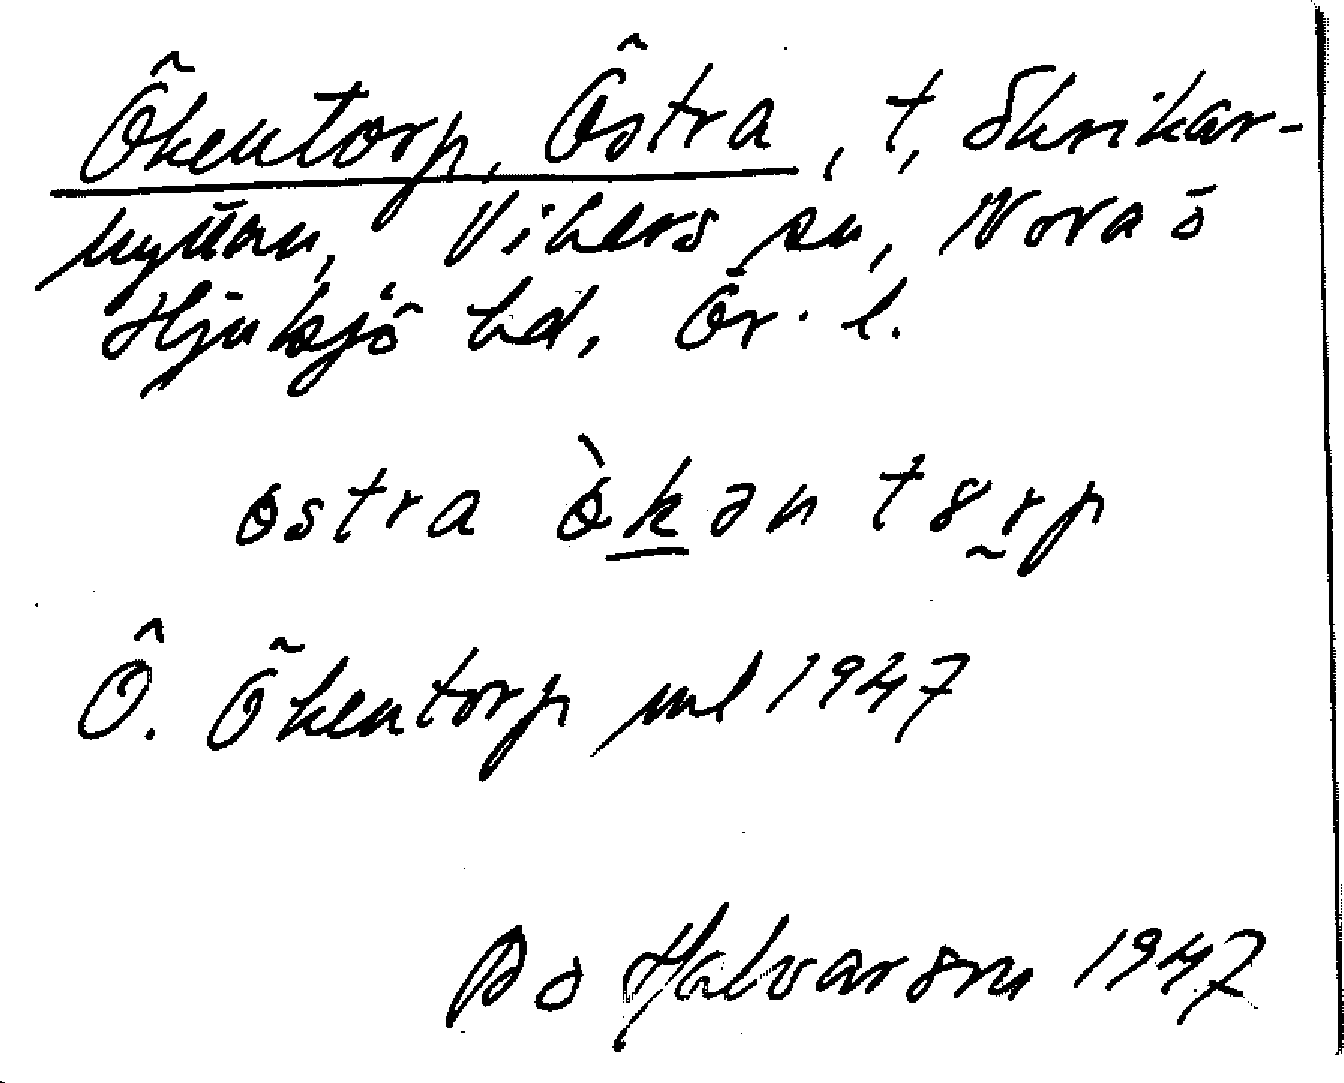 Ökentorp, Östra, t, Skrikar-
hyttan, Vikers sn, Nora o
Hjulsjö hd, Ör. l.
östra ö̀kən torp
Ö. Ökentorp jml 1947
Bo Halvarson 1947